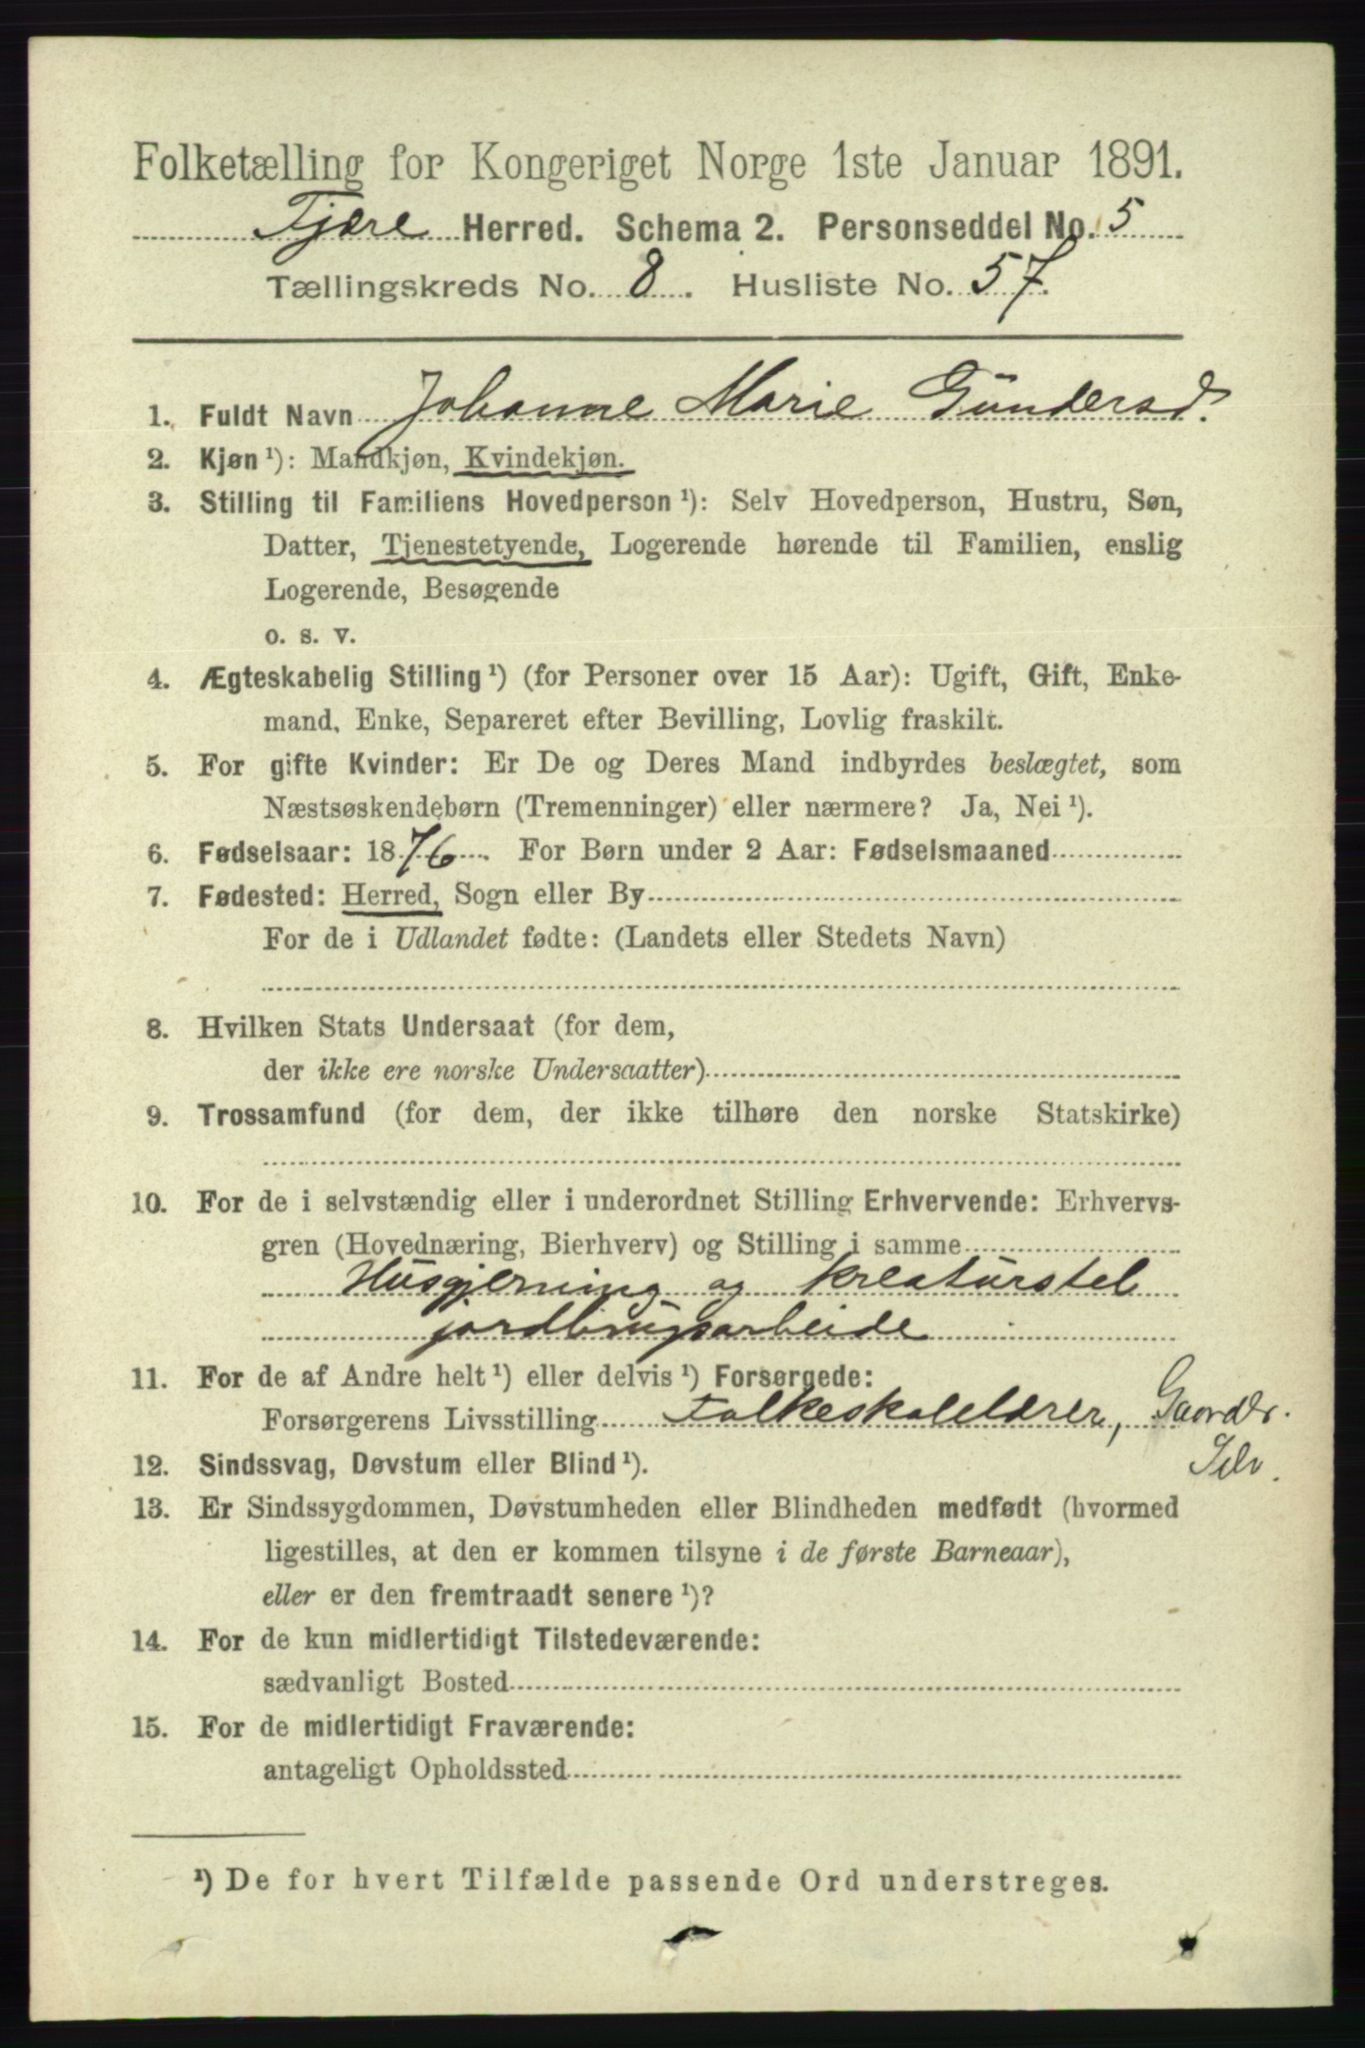 Folketælling for Kongeriget Norge 1ste Januar 1891.
Fjære Herred. Schema 2. Personseddel No. 5
Tællingskreds No. 8. Husliste No. 57.
1. Fuldt Navn Johanne Marie Gundersd.
2. Kjøn¹): Mandkjøn, Kvindekjøn.
3. Stilling til Familiens Hovedperson¹): Selv Hovedperson, Hustru, Søn,
Datter, Tjenestetyende, Logerende hørende til Familien, enslig
Logerende, Besøgende
o. s. v.
4. Ægteskabelig Stilling¹) (for Personer over 15 Aar): Ugift, Gift, Enke-
mand, Enke, Separeret efter Bevilling, Lovlig fraskilt.
5. For gifte Kvinder: Er De og Deres Mand indbyrdes beslægtet, som
Næstsøskendebørn (Tremenninger) eller nærmere? Ja, Nei¹).
6. Fødselsaar: 1876. For Børn under 2 Aar: Fødselsmaaned
7. Fødested: Herred, Sogn eller By
For de i Udlandet fødte: (Landets eller Stedets Navn)
8. Hvilken Stats Undersaat (for dem,
der ikke ere norske Undersaatter)
9. Trossamfund (for dem, der ikke tilhøre den norske Statskirke)
10. For de i selvstændig eller i underordnet Stilling Erhvervende: Erhvervs-
gren (Hovednæring, Bierhverv) og Stilling i samme
Husgjerning og kreaturstel
jordbrugsarbeide
11. For de af Andre helt¹) eller delvis¹) Forsørgede:
Forsørgerens Livsstilling Folkeskolelærer, Gaardbr.
Selv.
12. Sindssvag, Døvstum eller Blind¹).
13. Er Sindssygdommen, Døvstumheden eller Blindheden medfødt (hvormed
ligestilles, at den er kommen tilsyne i de første Barneaar),
eller er den fremtraadt senere¹)?
14. For de kun midlertidigt Tilstedeværende:
sædvanligt Bosted
15. For de midlertidigt Fraværende:
antageligt Opholdssted
¹) De for hvert Tilfælde passende Ord understreges.